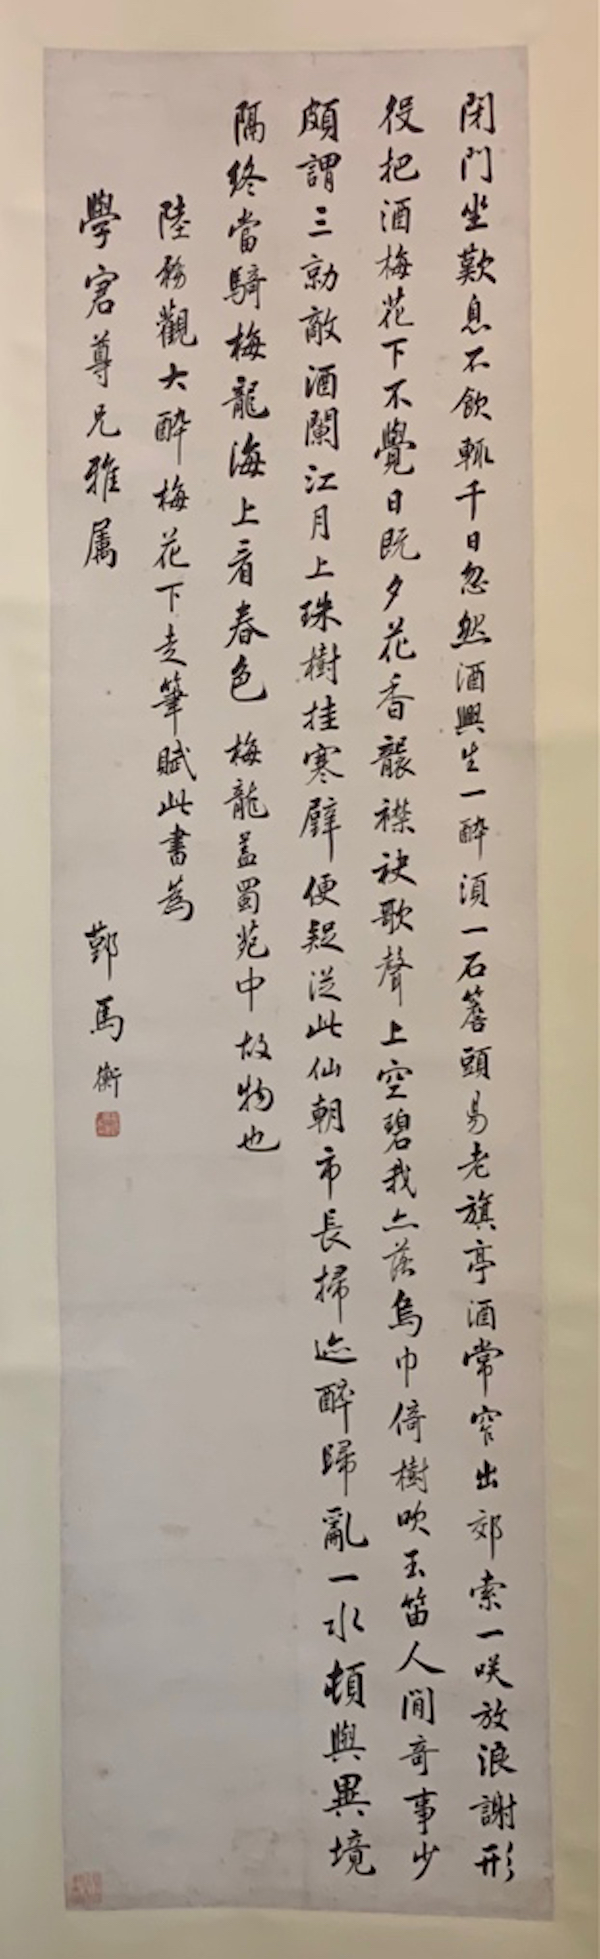 閉門坐歎息不飲輒千日忽然酒興生一醉須一石簷頭易老旗亭酒常窄出郊索一咲放浪謝形
役把酒梅花下不覺日既夕花香襲襟袂歌聲上空碧我亦落烏巾倚樹吹玉笛人間奇事少
頗謂三勍敵酒闌江月上珠樹挂寒璧便疑從此仙朝市長掃迹醉歸亂一水頓與異境
隔終當騎梅龍海上看春色 梅龍蓋蜀苑中故物也
陸務觀大醉梅花下走筆賦此書為
學宭尊兄雅屬
鄞馬衡